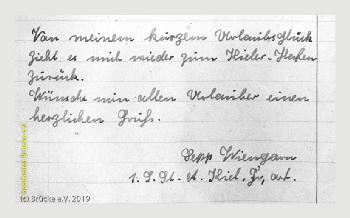 Von meinem kurzem Urlaubsglück
zieht es mich wieder zum Kieler-Hafen
zurück.
Wünsche nun allen Urlauber einen
herzlichen Gruß.
Sepp Wiengarn
1. S. St. - A. Kiel,
(c) Brücke e.V. 2019